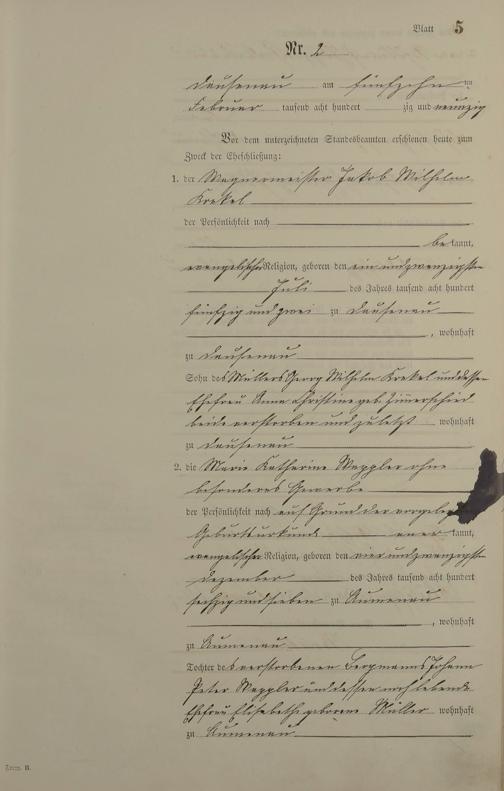 Blatt 5
Nr. 2
Dausenau am fünfzehn ten
Februar tausend acht hundert zig und neunzig
Vor dem unterzeichneten Standesbeamten erschienen heute zum
Zweck der Eheschließung:
1. der Wagnermeister Jakob Wilhelm
Krekel
der Persönlichkeit nach
be kannt,
evangelischer Religion, geboren den ein und zwanzigsten
Juli des Jahres tausend acht hundert
fünfzig und zwei zu Dausenau
, wohnhaft
zu Dausenau
Sohn des Müllers Georg Wilhelm Krekel und dessen
Ehefrau Anna Christine geb. Zimerschied
beide verstorben und zuletzt wohnhaft
zu Dausenau
2. die Marie Katharine Weppler ohne
besonderes Gewerbe
der Persönlichkeit nach auf Grund der
Geburtsurkunde aner kannt,
evangelischer Religion, geboren den vier und zwanzigsten
Dezember des Jahres tausend acht hundert
sechzig und sieben zu Aumenau
, wohnhaft
zu Aumenau
Tochter des verstorbenen Bergmanns Johann
Peter Weppler und dessen noch lebende
Ehefrau Elisabethe geborene Müller wohnhaft
zu Aumenau
Form. B.